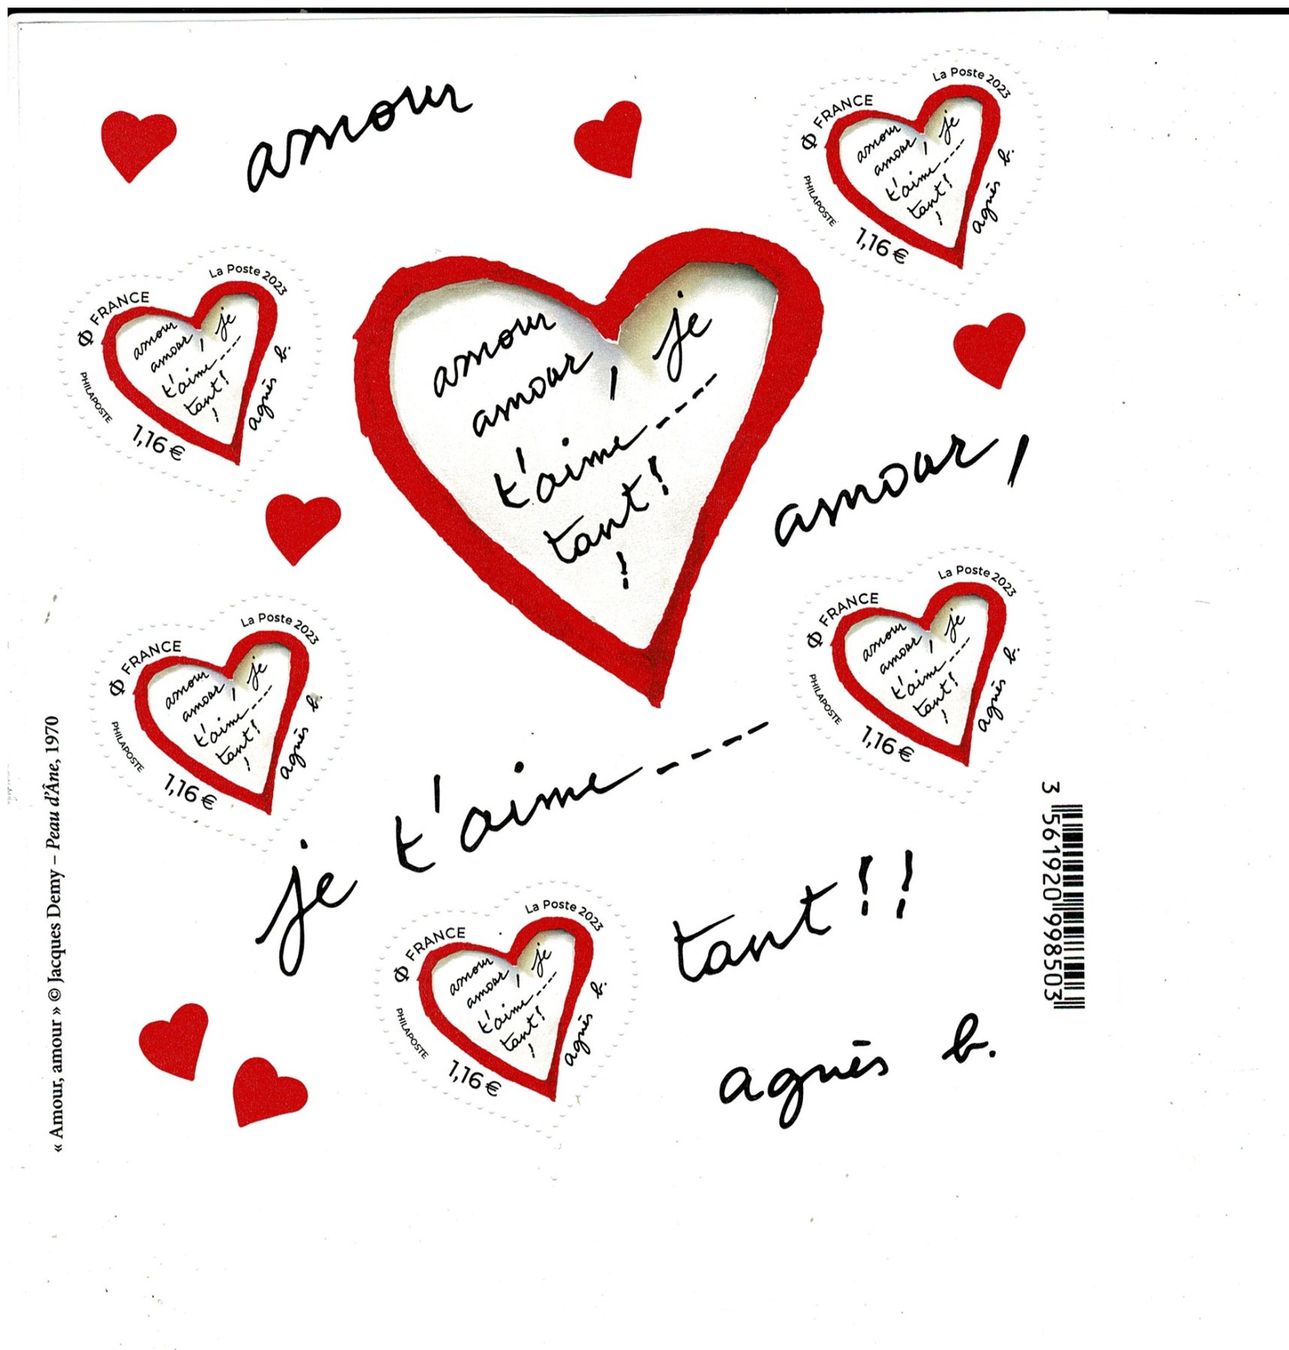 amour
La Poste 2023
FRANCE
amour
amour, je
t'aime----
tant!
!
agnès b.
PHILAPOSTE
1,16 €
La Poste 2023
FRANCE
amour
amour, je
t'aime----
tant!
!
agnès b.
PHILAPOSTE
1,16 €
amour
amour, je
t'aime----
tant!
!
amour,
La Poste 2023
FRANCE
amour
amour, je
t'aime----
tant!
!
agnès b.
PHILAPOSTE
1,16 €
La Poste 2023
FRANCE
amour
amour, je
t'aime----
tant!
!
agnès b.
PHILAPOSTE
1,16 €
je t'aime----
tant!!
La Poste 2023
FRANCE
amour
amour, je
t'aime----
tant!
!
agnès b.
PHILAPOSTE
1,16 €
agnès b.
« Amour, amour » © Jacques Demy – Peau d'Âne, 1970
3 561920 998503